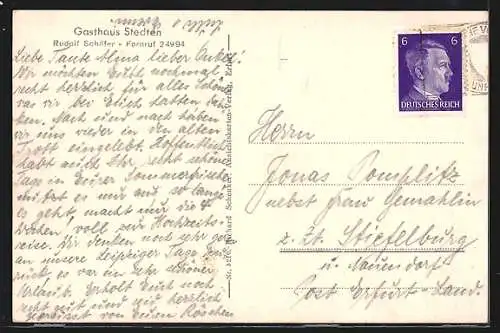 Gasthaus Stedten
Rudolf Schäfer • Fernruf 24994
Liebe Tante Alma lieber Onkel!
Wir möchten Euch nochmal
recht herzlich für alles
was wir bei Euch hatten
Nach und nach haben
wir uns wieder in den alten
Trott eingelebt. Hoffentlich
habt auch Ihr recht schöne
Tage in Eurer Sommerfrische
nur so lange
es geht, macht nur die 4
Wochen voll zur Hochzeits-
reise. Wir denken noch sehr gern
an unsere Leipziger Tage
es war ein sehr schöner
Urlaub. Erholt Euch noch
recht gut und seid herzlich
gegrüsst von Euren Röschen
6 6
DEUTSCHES REICH
Herrn
Jonas Pomplitz
nebst Frau Gemahlin
z. Zt. Stiefelburg
ü. Nauendorf
Post Erfurt-Land.